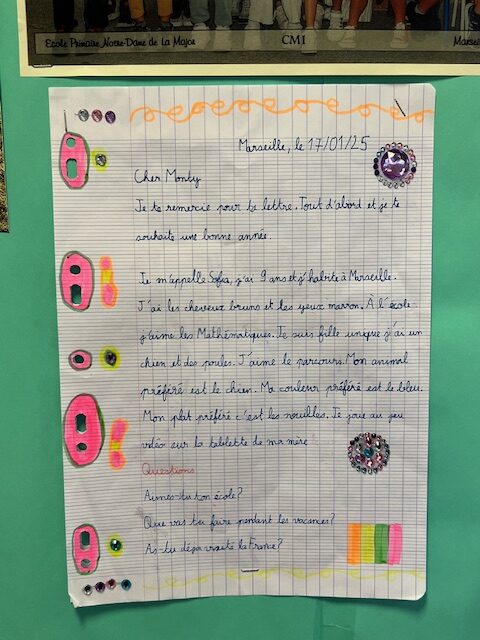 Ecole Primaire Notre-Dame de la Major
CM1
Marse
Marseille, le 17/01/25
Cher Monty
Je te remercie pour ta lettre. Tout d'abord et je te
souhaite une bonne année.
Je m'appelle Sofia, j'ai 9 ans et j'habite à Marseille.
J'ai les cheveux bruns et les yeux marron. À l'école
j'aime les Mathématiques. Je suis fille unique j'ai un
chien et des poules. J'aime le parcours. Mon animal
préféré est le chien. Ma couleur préféré est le bleu.
Mon plat préféré c'est les nouilles. Je joue au jeu
vidéo sur la tablette de ma mère
Questions
Aimes-tu ton école?
Que vas tu faire pendant les vacances?
As-tu déjà visité la France?